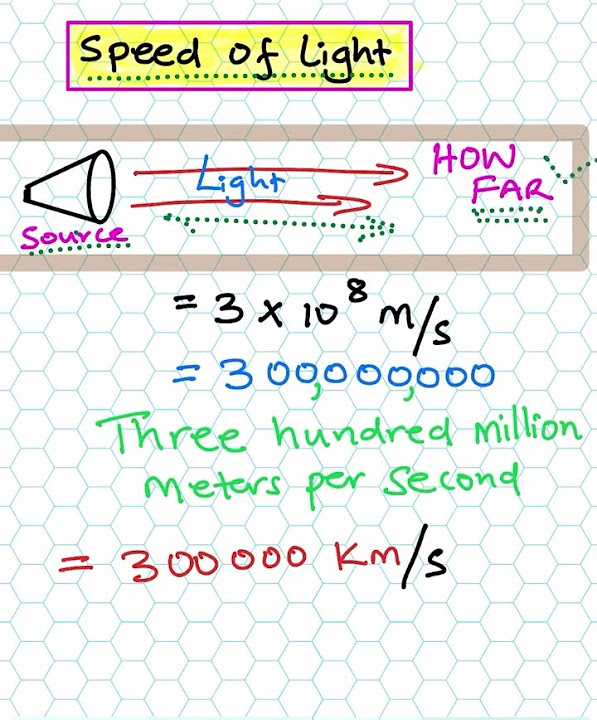 Speed of Light
Light
HOW
FAR
Source
= 3 x 10⁸ m/s
= 300,000,000
Three hundred million
meters per second
= 300000 Km/s